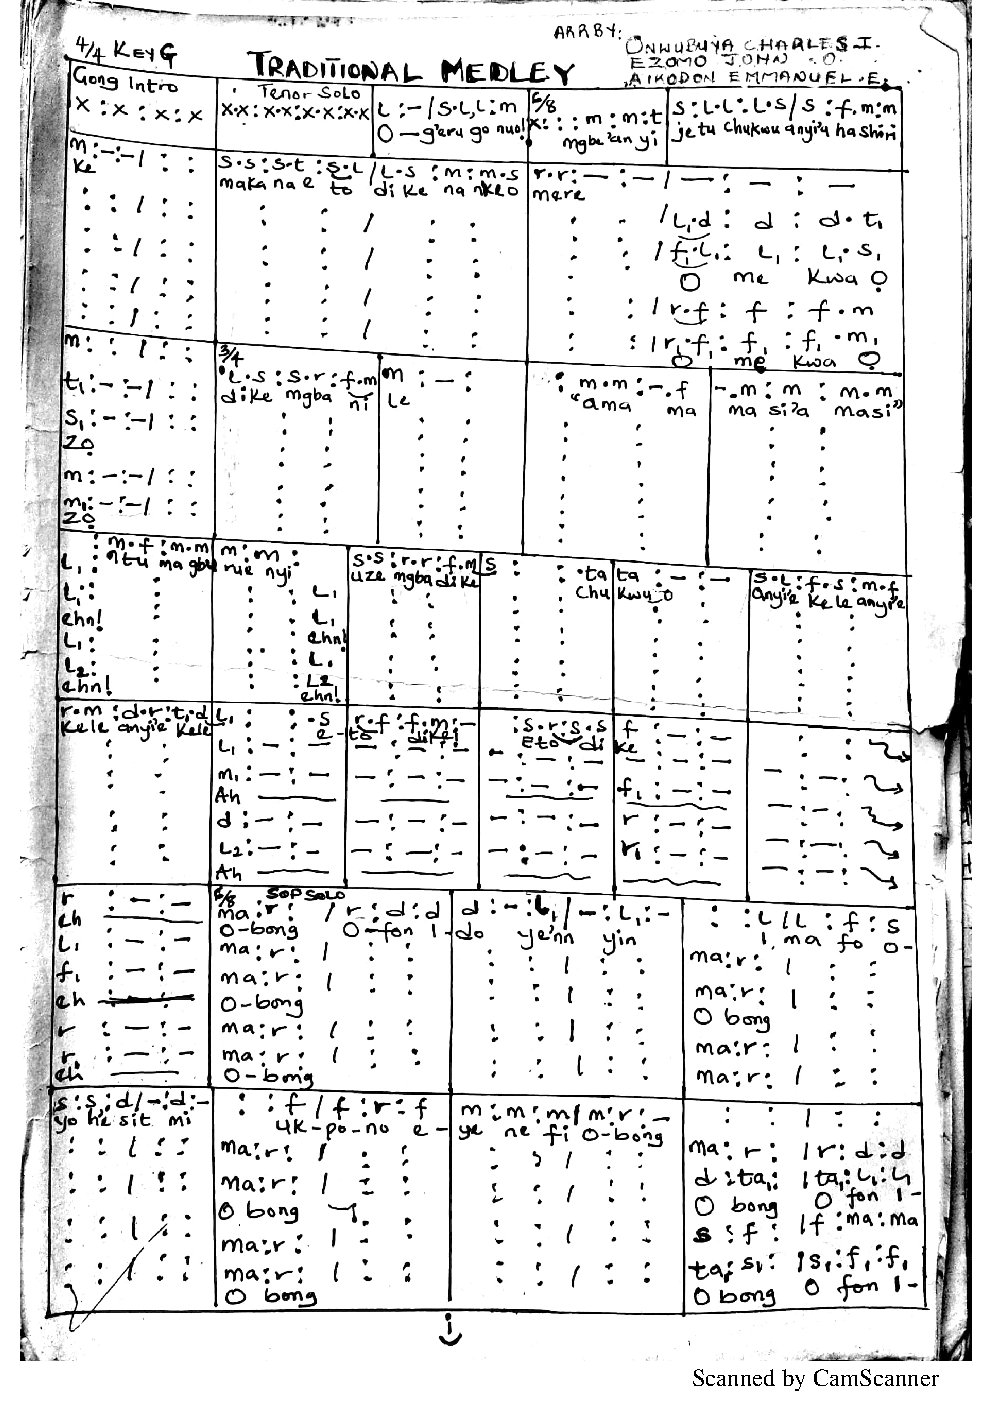 ARR BY: ONWUBUYA CHARLES I.
EZOMO JOHN .O.
AIKODON EMMANUEL .E.
4/4 KEY G
TRADITIONAL MEDLEY
Gong Intro
x : x : x : x
Tenor Solo
x.x : x.x : x.x : x.x
L : – / s.L, L : m
O – g'eru go nuo!
6/8
x : : : m : m : t
mgbe 'an yi
s : L . L : L . s / s : f, m : m
je tu chukwu anyi'u ha shiri
m : – : – / : :
ke
s.s : s.t : s.L / L.s : m : m.s
maka na e to di ke na nkeo
r.r : – : – / – : – : –
mere
/ L₁.d : d : d.t₁
/ f₁.L₁ : L₁ : L₁.s₁
O me kwa O
/ r.f : f : f.m
: / r₁.f₁ : f₁ : f₁.m₁
O me kwa O
m : : / : :
t₁ : – : – / : :
s₁ : – : – / : :
ZO
m : – : – / : :
m₁ : – : – / : :
ZO
3/4
L.s : s.r : f.m
dike mgba ni
m : – :
le
: m.m : – .f
"ama ma
– .m : m : m.m
ma si'a masi"
: m.f : m.m
ntu ma gbu
L₁ :
L₁ :
ehn!
L₁ :
L₂ :
ehn!
m : m :
rue nyi
L₁
L₁
ehn!
L₁
L₂
ehn!
s.s : r.r : f.m
uze mgba dike
s : : .ta
chu
ta : – : –
kwu-o
s.L : f.s : m.f
anyi'e kele anyi'e
r.m : d.r : t₁.d
kele anyi'e kele
L₁ : : .s
e –
L₁ : – : –
m₁ : – : –
Ah
d : – : –
L₂ : – : –
Ah
r.f : f.m : –
to dike i
: s.r : s.s
Eto di
f : – : –
ke
f₁ : – : –
r : – : –
r₁ : – : –
r : – : –
eh
L₁ : – : –
f₁ : – : –
eh
r : – : –
r₁ : – : –
eh
6/8 SOP SOLO
ma : r : / r : d : d
O-bong O-fon I-
ma : r : / : :
ma : r : / : :
O-bong
ma : r : / : :
ma : r : / : :
O-bong
d : – : L₁ / – : L₁ : –
do ye'nn yin
: : L / L : f : s
I ma fo O-
ma : r : / : :
ma : r : / : :
O bong
ma : r : / : :
ma : r : / : :
s : s : d / – : d : –
yo he sit mi
: : f / f : r : f
uk-po-no e –
ma : r : / : :
ma : r : / : :
O bong
ma : r : / : :
ma : r : / : :
O bong
m : m : m / m : r : –
ye ne fi O-bong
: : / : :
ma : r : / r : d : d
d : ta₁ : / ta₁ : L₁ : L₁
O bong O fon I-
s : f : / f : ma : ma
ta₁ : s₁ : / s₁ : f₁ : f₁
O bong O fon I-
Scanned by CamScanner